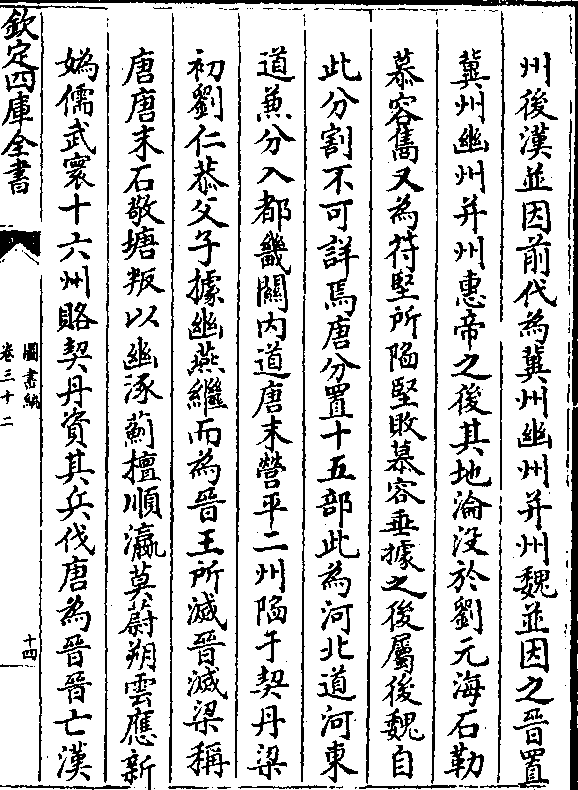 州後漢並因前代為冀州幽州并州魏並因之晉置
冀州幽州并州惠帝之後其地淪没於劉元海石勒
慕容雋又為符堅所陷堅敗慕容垂據之後屬後魏自
此分割不可詳焉唐分置十五部此為河北道河東
道兼分入都畿關内道唐末營平二州陷于契丹梁
初劉仁恭父子據幽燕繼而為晉王所滅晉滅梁稱
唐唐末石敬塘叛以幽涿薊檀順瀛莫蔚朔雲應新
媯儒武寰十六州賂契丹資其兵伐唐為晉晉亡漢
欽定四庫全書
圖書編
卷三十二
十四